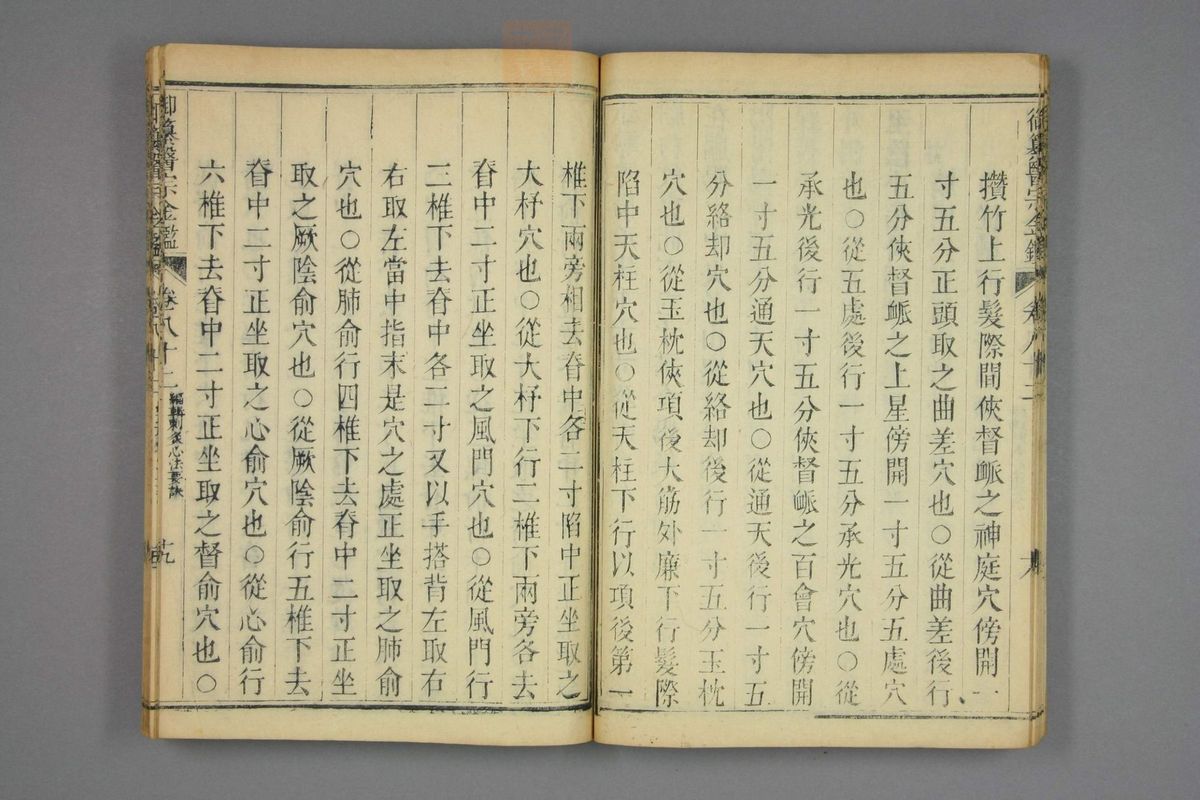 攢竹上行髮際間俠督衇之神庭穴傍開一
寸五分正頭取之曲差穴也○從曲差後行
五分俠督衇之上星傍開一寸五分五處穴
也○從五處後行一寸五分承光穴也○從
承光後行一寸五分俠督衇之百會穴傍開
一寸五分通天穴也○從通天後行一寸五
分絡却穴也○從絡却後行一寸五分玉枕
穴也○從玉枕俠項後大筋外廉下行髮際
陷中天柱穴也○從天柱下行以項後第一
椎下兩旁相去脊中各二寸陷中正坐取之
大杼穴也○從大杼下行二椎下兩旁各去
脊中二寸正坐取之風門穴也○從風門行
三椎下去脊中各二寸又以手搭背左取右
右取左當中指末是穴之處正坐取之肺俞
穴也○從肺俞行四椎下去脊中二寸正坐
取之厥陰俞穴也○從厥陰俞行五椎下去
脊中二寸正坐取之心俞穴也○從心俞行
六椎下去脊中二寸正坐取之督俞穴也○
御纂醫宗金鑑
卷八十二
編輯刺灸心法要訣
十九